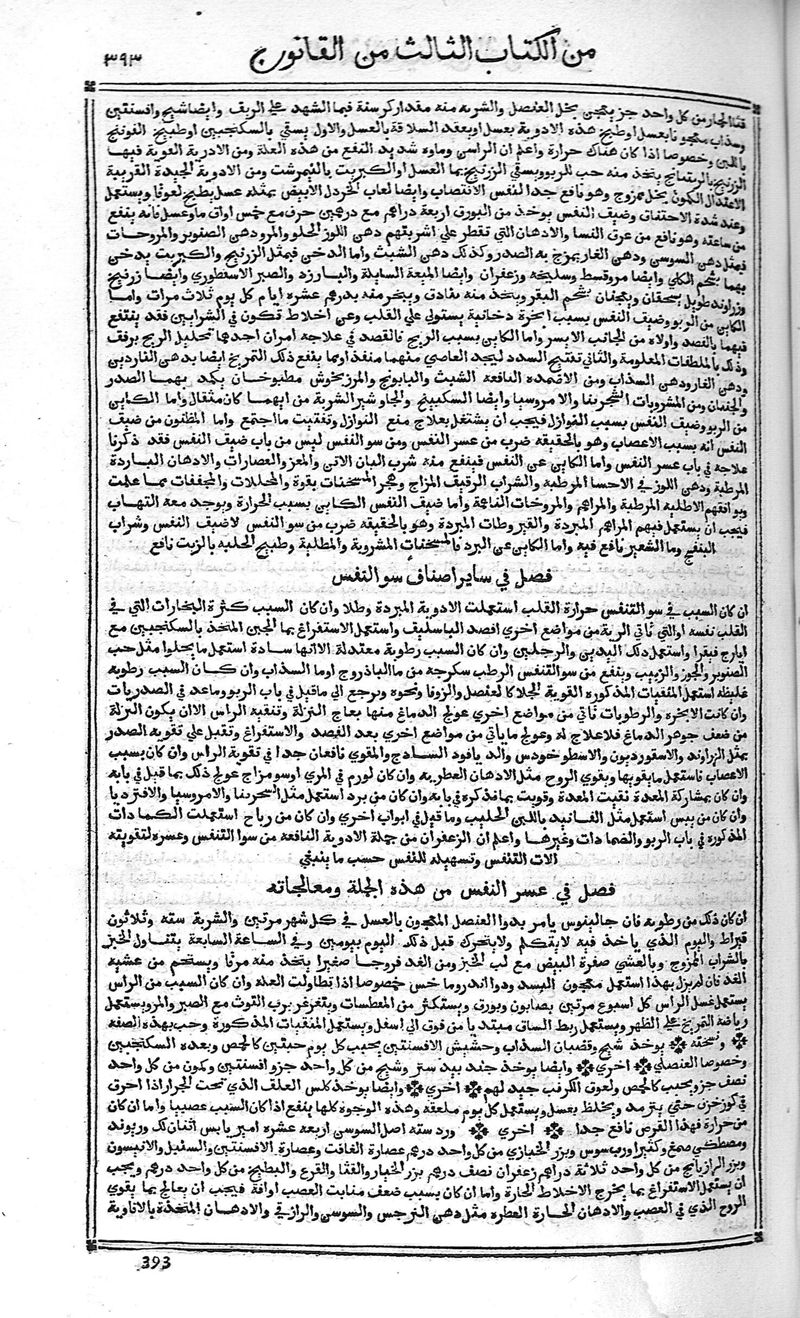 من الكتاب الثالث من القانون ٣٩٣
قثا الحار من كل واحد جز يعجن بخل العنصل والشربه منه مقدار كرسنة فيما الشهد علي الريف وايضا شيح وافسنتين
وسذاب معجونا بعسل او طبيخ هذه الادوية بعسل او بعقد السلاقة بالعسل والاول يستي بالسكنجبين او طبيخ الفوتنج
باللبن وخصوصا اذا كان هناك حرارة واعلم ان الراسن وماوه شديد النفع من هذه العلة ومن الادرية القوية فيها
الزرنيخ بالريتيانج يتخذ منه حب للربو ويسقي الزرنيخ بما العسل او الكبريت بالنيمرشت ومن الادوية الجيدة القريبة
الاعتدال الكمون بخل ممزوج وهو نافع جدا لنفس الانتصاب وايضا لعاب الخردل الابيض بمثله عسل يطبخ لعوقا ويستعمل
وعند شدة الاختناق وضيف النفس يوخذ من البورق اربعة دراهم مع درهمين حرف مع خمس اواق ما وعسل فانه ينفع
من ساعته وهو نافع من عرق النسا والادهان التي تقطر علي اشربتهم دهن اللوز الحلو والمر ودهن الصنوبر والمروحات
فمثل دهن السوسن ودهن الغار يمزج به الصدر وكذلك دهن الشبث واما الدخن فبمثل الزرنيخ والكبريت يدخن
بهما بشحم الكلي وايضا مر وقسط وسليخه وزعفران وايضا الميعة السايلة والبارزد والصبر الاسقطوري وايضا زرنيخ
وزراوند طويل يسحقان ويعجنان بشحم البقر ويتخذ منه بنادق ويبخر منه بدرهم عشرة ايام كل يوم ثلاث مرات واما
الكاين من الربو وضيف النفس بسبب ابخرة دخانية يستولي علي القلب وعن اخلاط تكون في الشرايين فقد ينتفع
فيهما بالفصد واولاه من الجانب الايسر واما الكاين بسبب الريح فالقصد في علاجه امران احدهما تحليل الريح برفف
وذلك بالملطفات المعلومة والثاني تفتيح السدد ليجد العاصي منهما منفذا ومما ينفع ذلك التمريخ ايضا بدهن الناردين
ودهن الغار ودهن السذاب ومن الاضمدة النافعة الشبث والبابونج والمرزنجوش مطبوخان يكمد بهما الصدر
والجنبان ومن المشروبات الشجرينا والامروسيا وايضا السكبينج والجاوشير الشربة من ايهما كان مثقال واما الكاين
من الربو وضيف النفس بسبب النوازل فيجب ان يشتغل بعلاج منع النوازل وتفتيت ما اجتمع واما المظنون من ضيف
النفس انه بسبب الاعصاب وهو بالحقيقه ضرب من عسر النفس ومن سو النفس ليس من باب ضيف النفس فقد ذكرنا
علاجه في باب عسر النفس واما الكاين عن النفس فينفع منه شرب البان الاتن والمعز والعصارات والادهان الباردة
المرطبة ودهن اللوز في الاحسا المرطبه والشراب الرقيق المزاج وهجر المسخنات بقوة والمحللات والمجففات مما علمت
ويوافقهم الاطلية المرطبة والمراهم والمروخات الناعمة واما ضيف النفس الكاين بسبب الحرارة ويوجد معه التهاب
فيجب ان يستعمل فيهم المراهم المبردة والقيروطات المبردة وهو بالحقيقة ضرب من سو النفس لا ضيف النفس وشراب
البنفسج وما الشعير نافع فيه واما الكاين عن البرد فالمسخنات المشروبة والمطلية وطبيخ الحلبه بالزيت نافع
فصل في ساير اصناف سو النفس
ان كان السبب في سو التنفس حرارة القلب استعملت الادوية المبردة وطلا وان كان السبب كثرة البخارات التي في
القلب نفسه او التي تاتي الرية من مواضع اخري افصد الباسليف واستعمل الاستفراغ بما الجبن المتخذ بالسكنجبين مع
ايارج فيقرا واستعمل دلك اليدين والرجلين وان كان السبب رطوبة معتدلة الا انها سادة استعمل ما يجلوا مثل حب
الصنوبر والجوز والزبيب وينفع من سو التنفس الرطب سكرجه من ما الباذروج او ما السذاب وان كان السبب رطوبه
غليظه استعمل المنقيات المذكوره القوية الجلا كالعنصل والزوفا ونحوه ويرجع الي ما قيل في باب الربو وما عد في الصدريات
وان كانت الابخرة والرطوبات تاتي من مواضع اخري عولج الدماغ منها بعلاج النزلة وتنقية الراس الا ان يكون النزلة
من ضعف جوهر الدماغ فلا علاج له وعولج ما ياتي من مواضع اخري بعد الفصد والاستفراغ وتقبل علي تقوية الصدر
بمثل الزراوند والاسقورديون والاسطوخودس والدياقود الساذج والمقوي نافعان جدا في تقوية الراس وان كان بسبب
الاعصاب فاستعمل ما يقويها ويقوي الروح مثل الادهان العطريه وان كان لورم في المري او سو مزاج عولج ذلك بما قيل في بابه
وان كان بمشاركة المعدة نقيت المعدة وقويت بما نذكره في بابه وان كان من برد استعمل مثل الشجرينا والامروسيا والانقرديا
وان كان من يبس استعمل مثل الفانيد باللبن الحليب وما قيل في ابواب اخري وان كان من رياح استعملت الكمادات
المذكورة في باب الربو والضمادات وغيرها واعلم ان الزعفران من جملة الادوية النافعه من سو التنفس وعسره لتقويته
الات التنفس وتسهيله للنفس حسب ما ينبغي
فصل في عسر النفس من هذه الجملة ومعالجاته
ان كان ذلك من رطوبة فان جالينوس يامر بدوا العنصل المعجون بالعسل في كل شهر مرتين والشربة سته وثلاثون
قيراط واليوم الذي ياخذ فيه لا يتكلم ولا يتحرك قبل ذلك اليوم بيومين وفي الساعة السابعة يتناول الخبز
بالشراب الممزوج وبالعشي صفرة البيض مع لب الخبز ومن الغد فروجا صغيرا يتخذ منه مرقا ويستحم من عشية
الغد فان لم يزل بهذا استعمل معجون البسد ودوا اندروما خس خصوصا اذا تطاولت العلة وان كان السبب من الراس
يستعمل غسل الراس كل اسبوع مرتين بصابون وبورق ويستكثر من المعطسات ويتغرغر برب التوث مع الصبر والمر ويستعمل
رياضة التمريخ علي الظهر ويستعمل ربط الساق مبتديا من فوق الي اسفل ويستعمل المنقيات المذكورة وحب بهذه الصفه
ونسخته يوخذ شيح وقضبان السذاب وحشيش الافسنتين يحبب كل يوم حبتين كالحمص وبعده السكنجبين
وخصوصا العنصلي اخري وايضا يوخذ جندبيدستر وشيح من كل واحد جز وافسنتين وكمون من كل واحد
نصف جز ويحبب كالحمص ولعوق الكرنب جيد لهم اخري وايضا يوخذ كلس العلف الذي تحت الجرار اذا احرق
في كوز خزف حتي يترمد ويخلط بعسل ويستعمل كل يوم ملعقه وهذه الوجوة كلها ينفع اذا كان السبب عصبيا واما ان كان
من حرارة فهذا القرص نافع جدا اخري ورد سته اصل السوسن اربعه عشره امير باريس اثنان لك وريوند
ومصطكي صمغ وكثيرا ورب سوس وبزر الخبازي من كل واحد درهم عصارة الغافت وعصارة الافسنتين والسنبل والانيسون
وبزر الرازيانج من كل واحد ثلاثة دراهم زعفران نصف درهم بزر الخيار والقثا والقرع والبطيخ من كل واحد درهم ويجب
ان يستعمل الاستفراغ بما يخرج الاخلاط الحارة واما ان كان بسبب ضعف منابت العصب او افة فيجب ان يعالج بما يقوي
الروح الذي في العصب والادهان الحارة العطرة مثل دهن النرجس والسوسن والرازقي والادهان المتخذة بالافاوية
393